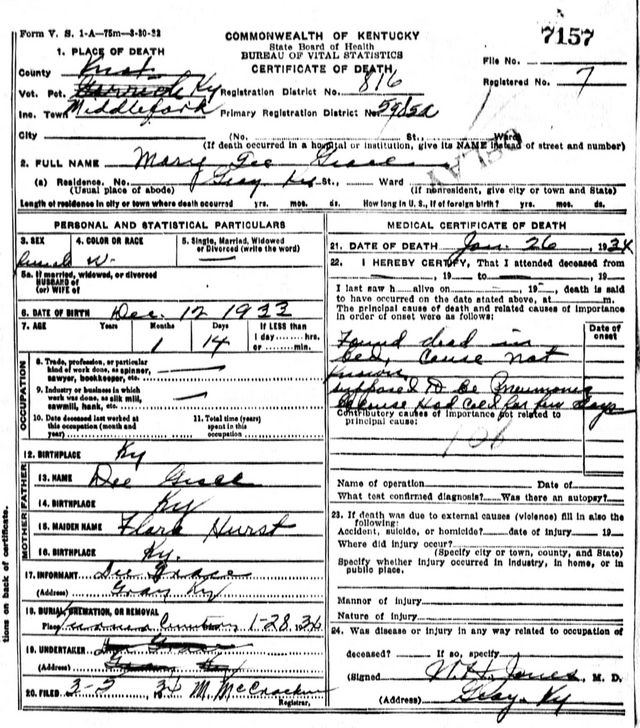 Form V. S. 1-A—75m—3-30-32
COMMONWEALTH OF KENTUCKY
State Board of Health
BUREAU OF VITAL STATISTICS
CERTIFICATE OF DEATH
7157
1. PLACE OF DEATH
File No.
County Knox
Registered No. 7
Vot. Pct. Ky Registration District No. 816
Inc. Town Middlefork Primary Registration District No.
City (No. St., Ward)
(If death occurred in a hospital or institution, give its NAME instead of street and number)
2. FULL NAME
(a) Residence. No. Gray Ky St., Ward
(Usual place of abode) (If nonresident, give city or town and State)
Length of residence in city or town where death occurred yrs. mos. ds. How long in U. S., if of foreign birth? yrs. mos. ds.
PERSONAL AND STATISTICAL PARTICULARS
3. SEX 4. COLOR OR RACE 5. Single, Married, Widowed or Divorced (write the word)
W.
5a. If married, widowed, or divorced
HUSBAND of
(or) WIFE of
6. DATE OF BIRTH Dec. 12 1933
7. AGE Years Months Days If LESS than
1 14 1 day hrs.
or min.
OCCUPATION
8. Trade, profession, or particular
kind of work done, as spinner,
sawyer, bookkeeper, etc.
9. Industry or business in which
work was done, as silk mill,
sawmill, bank, etc.
10. Date deceased last worked at
this occupation (month and
year)
11. Total time (years)
spent in this
occupation
12. BIRTHPLACE Ky
FATHER
13. NAME Dee
14. BIRTHPLACE Ky
MOTHER
15. MAIDEN NAME Flora Hurst
16. BIRTHPLACE Ky.
17. INFORMANT Dee Grace
(Address) Gray Ky
18. BURIAL, CREMATION, OR REMOVAL
Place 1-28 34
19. UNDERTAKER
(Address)
20. FILED 3-5 34 M. McCracken
Registrar.
tions on back of certificate.
MEDICAL CERTIFICATE OF DEATH
21. DATE OF DEATH Jan. 26, 1934
22. I HEREBY CERTIFY, That I attended deceased from
, 19 to , 19
I last saw h alive on , 19 , death is said
to have occurred on the date stated above, at m.
The principal cause of death and related causes of importance
in order of onset were as follows:
Date of onset
Found dead in
bed, cause not
known
supposed to be Pneumonia
because Had Cold for few days
Contributory causes of importance not related to
principal cause:
Name of operation Date of
What test confirmed diagnosis? Was there an autopsy?
23. If death was due to external causes (violence) fill in also the
following:
Accident, suicide, or homicide? date of injury 19
Where did injury occur?
(Specify city or town, county, and State)
Specify whether injury occurred in industry, in home, or in
public place.
Mannor of injury
Nature of injury
24. Was disease or injury in any way related to occupation of
deceased? If so, specify
(Signed Jones, M. D.
(Address) Gray, Ky